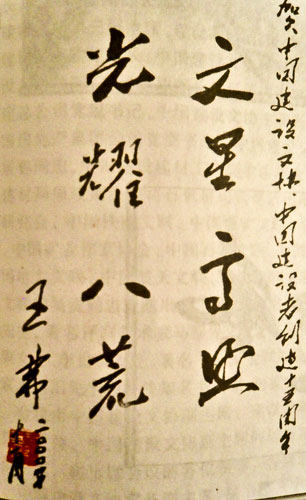 贺中国建设文协、中国建设者创建十五周年
文星高照
光耀八荒
王蒂
二〇〇
月